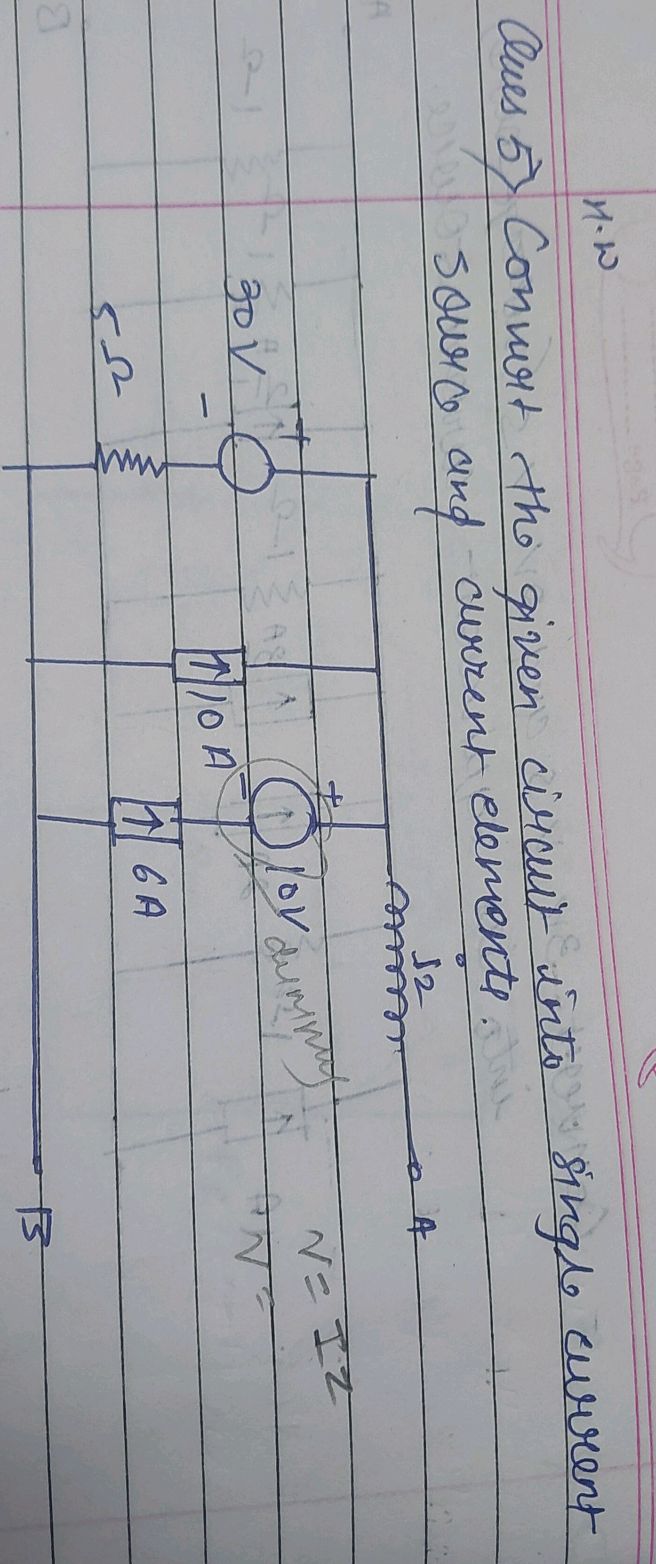 H.W
Ques 5) Convert the given circuit into single current
source and current elements.
30V
+
-
5Ω
10A
+
10V
-
dummy
6A
A
B
V = IZ